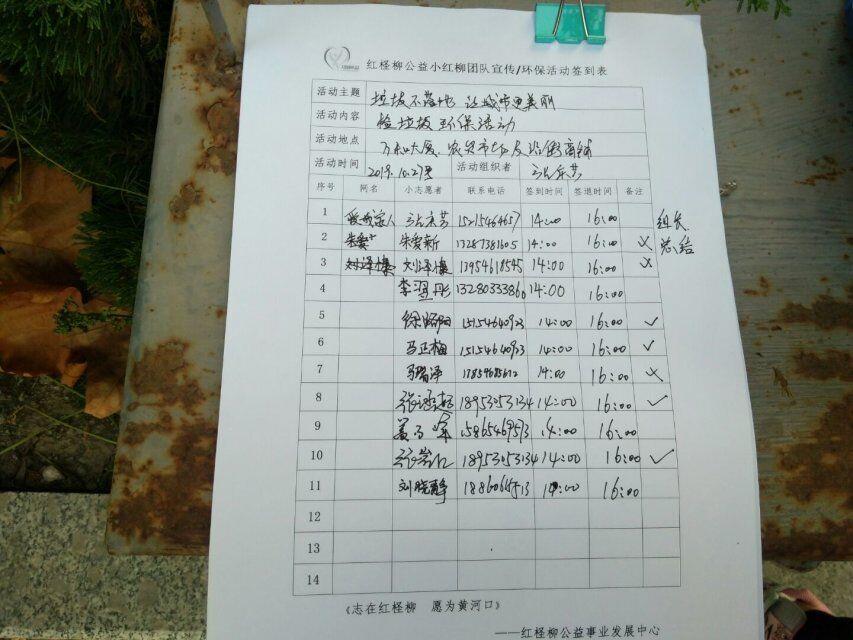 红柽柳公益小红柳团队宣传/环保活动签到表
活动主题 垃圾不落地 让城市更美丽
活动内容 捡垃圾 环保活动
活动地点 大厦、农贸市场及沿街商铺
活动时间 2019.10.27号 活动组织者
序号 网名 小志愿者 联系电话 签到时间 签退时间 备注
1 14:00 16:00 组长
2 朱爱新 13287381605 14:00 16:00 × 总结
3 刘泽 13954618545 14:00 16:00 ×
4 李翌彤 13280333860 14:00 16:00
5 15154640923 14:00 16:00 ✓
6 马正梅 15154640923 14:00 16:00 ✓
7 14:00 16:00 ×
8 18953253134 14:00 16:00 ✓
9 15865469573 14:00 16:00
10 18953253134 14:00 16:00 ✓
11 刘晓静 14:00 16:00
12
13
14
《志在红柽柳 愿为黄河口》
——红柽柳公益事业发展中心